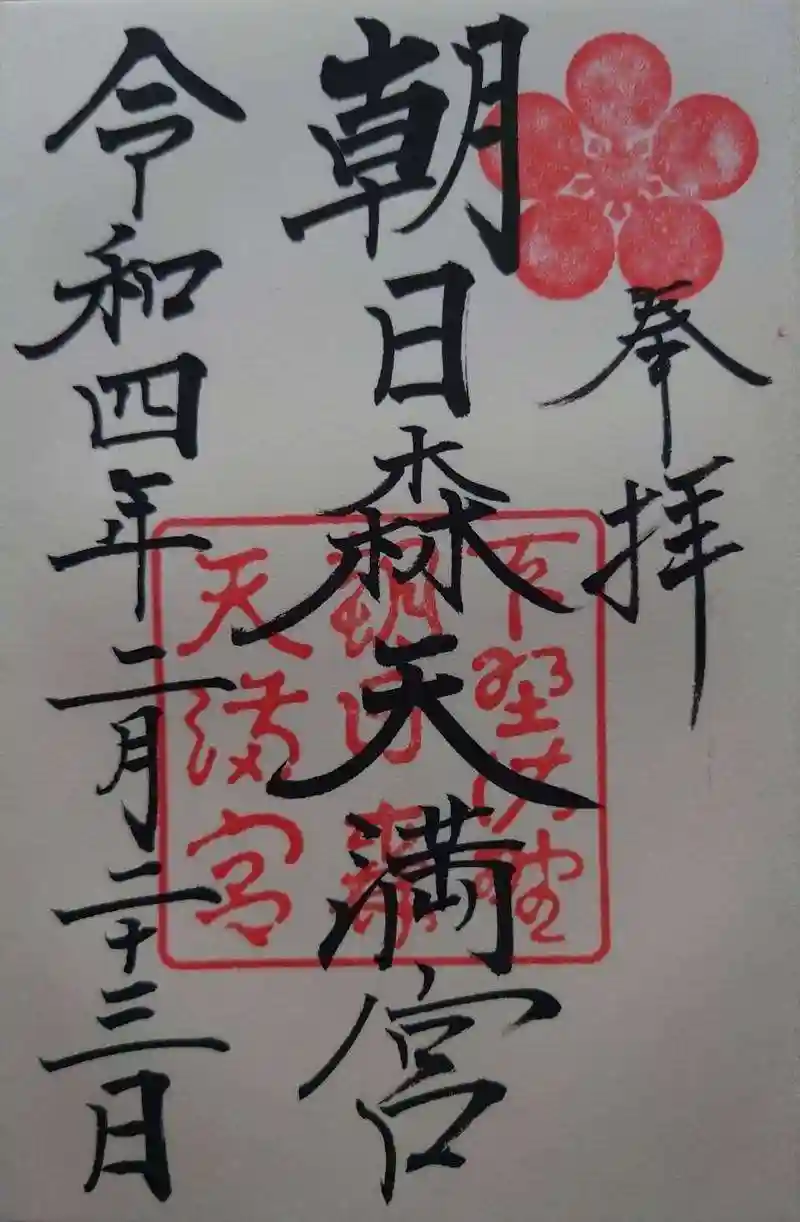 奉拝
朝日森天満宮
令和四年二月二十三日
下野佐野
朝日森
天満宮